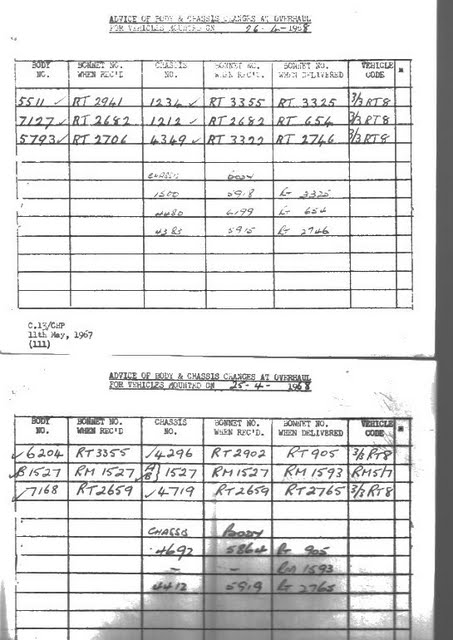 ADVICE OF BODY & CHASSIS CHANGES AT OVERHAUL
FOR VEHICLES MOUNTED ON 26-4-1968
BODY NO. BONNET NO. WHEN REC'D CHASSIS NO. BONNET NO. WHEN REC'D. BONNET NO. WHEN DELIVERED VEHICLE CODE *
5511 ✓ RT 2941 1234 ✓ RT 3355 RT 3325 3/3 RT8
7127 ✓ RT 2682 1212 ✓ RT 2682 RT 654 3/3 RT8
5793 ✓ RT 2706 4349 ✓ RT 3322 RT 2746 3/3 RT8
CHASSIS BODY
1500 5918 Rt 3325
4480 6199 Rt 654
4385 5915 Rt 2746
C.13/CHP
11th May, 1967
(111)
ADVICE OF BODY & CHASSIS CHANGES AT OVERHAUL
FOR VEHICLES MOUNTED ON 25-4-1968
BODY NO. BONNET NO. WHEN REC'D CHASSIS NO. BONNET NO. WHEN REC'D. BONNET NO. WHEN DELIVERED VEHICLE CODE *
✓6204 RT 3355 ✓4296 RT 2902 RT 905 3/3 RT8
✓B1527 RM 1527 A/B} 1527 RM 1527 RM 1593 RM5/7
✓7168 RT 2659 ✓4719 RT 2659 RT 2765 3/3 RT8
CHASSIS BODY
4692 5864 Rt 905
— — RM 1593
4412 5919 Rt 2765